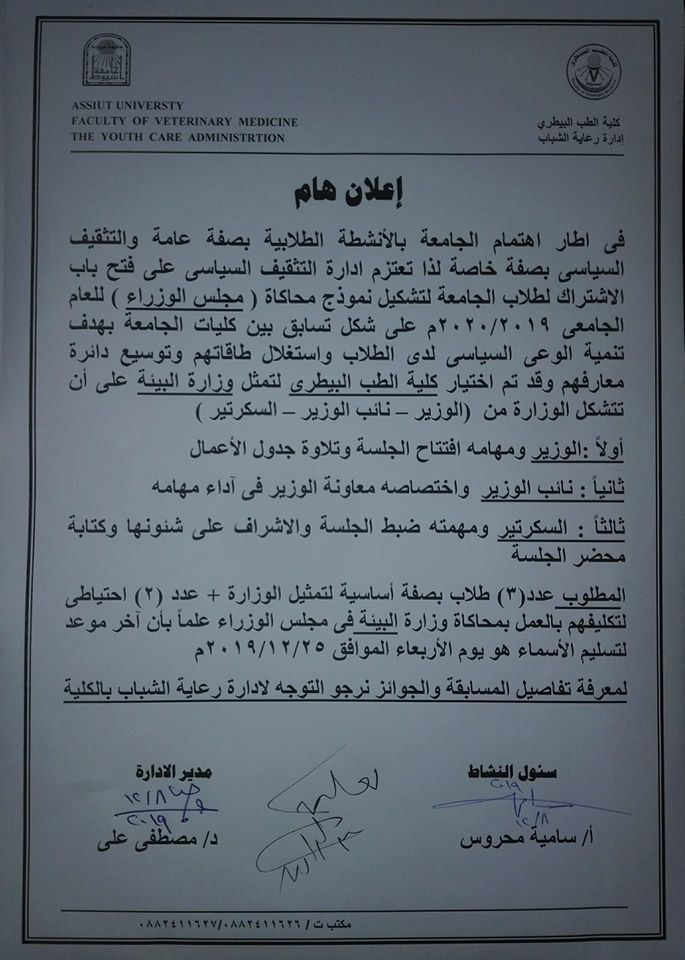 ASSIUT UNIVERSTY
FACULTY OF VETERINARY MEDICINE
THE YOUTH CARE ADMINISTRTION
كلية الطب البيطري
إدارة رعاية الشباب
إعلان هام
فى اطار اهتمام الجامعة بالأنشطة الطلابية بصفة عامة والتثقيف
السياسى بصفة خاصة لذا تعتزم ادارة التثقيف السياسى على فتح باب
الاشتراك لطلاب الجامعة لتشكيل نموذج محاكاة ( مجلس الوزراء ) للعام
الجامعى ٢٠٢٠/٢٠١٩م على شكل تسابق بين كليات الجامعة بهدف
تنمية الوعى السياسى لدى الطلاب واستغلال طاقاتهم وتوسيع دائرة
معارفهم وقد تم اختيار كلية الطب البيطرى لتمثل وزارة البيئة على أن
تتشكل الوزارة من (الوزير – نائب الوزير – السكرتير )
أولاً :الوزير ومهامه افتتاح الجلسة وتلاوة جدول الأعمال
ثانياً : نائب الوزير واختصاصه معاونة الوزير فى آداء مهامه
ثالثاً : السكرتير ومهمته ضبط الجلسة والاشراف على شئونها وكتابة
محضر الجلسة
المطلوب عدد(٣) طلاب بصفة أساسية لتمثيل الوزارة + عدد (٢) احتياطى
لتكليفهم بالعمل بمحاكاة وزارة البيئة فى مجلس الوزراء علماً بأن آخر موعد
لتسليم الأسماء هو يوم الأربعاء الموافق ٢٠١٩/١٢/٢٥م
لمعرفة تفاصيل المسابقة والجوائز نرجو التوجه لادارة رعاية الشباب بالكلية
سئول النشاط
مدير الادارة
٢٠١٩
١٢/٨
١٢/٨
٢٠١٩
أ/ سامية محروس
د/ مصطفى على
مكتب ت / ٠٨٨٢٤١١٦٢٧/٠٨٨٢٤١١٦٢٦